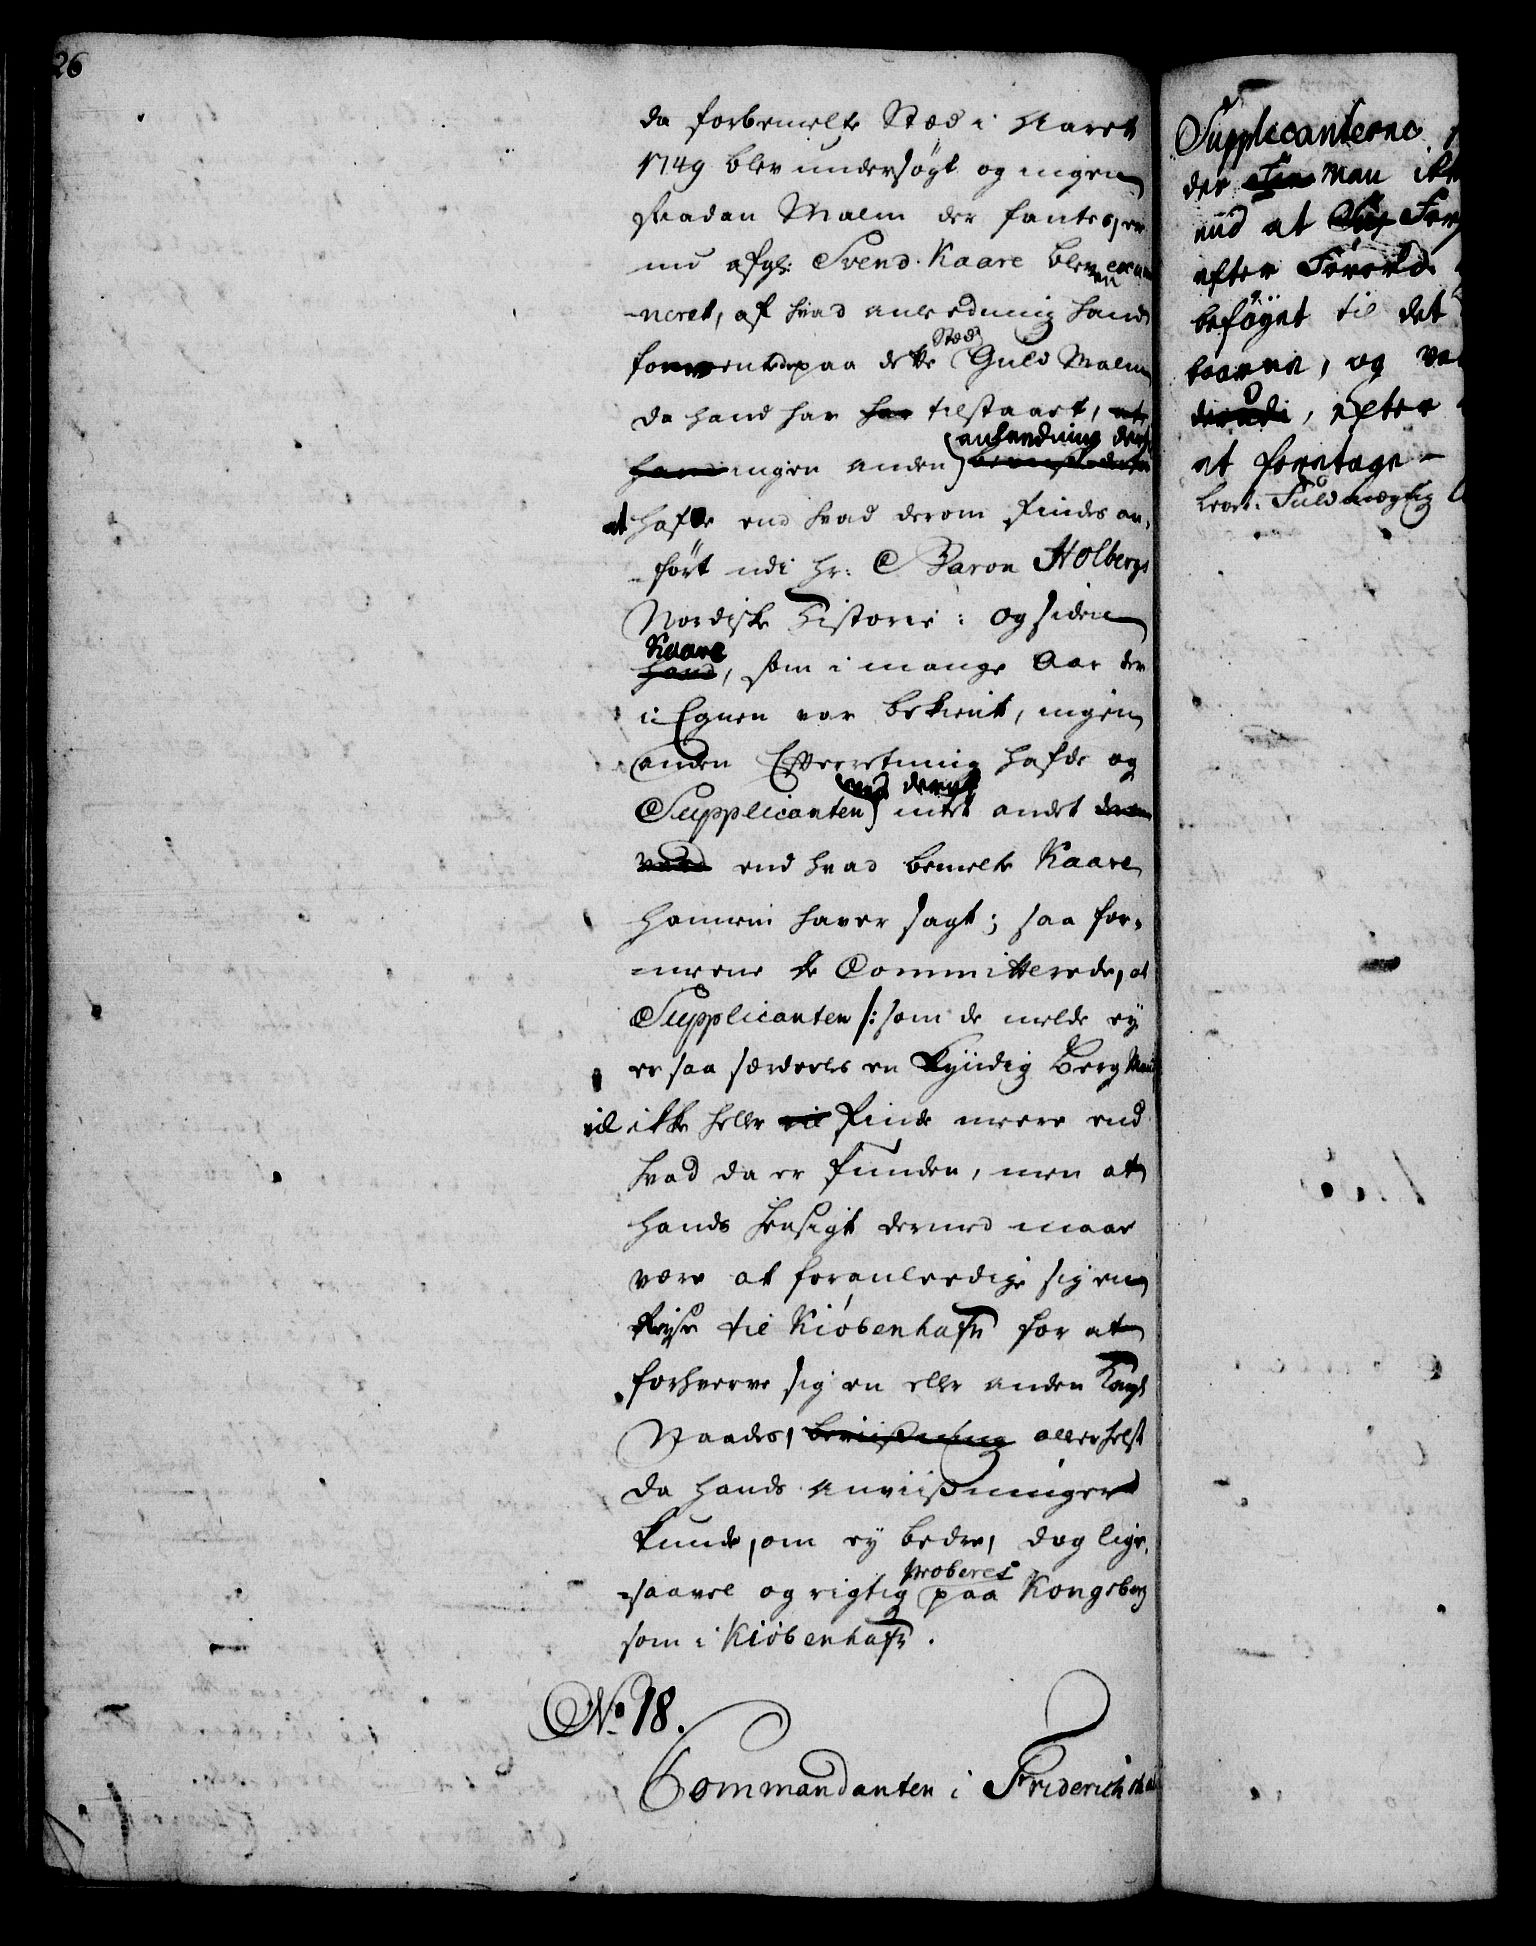 26
da forbemelte Stæd i Aaret
1749 blev undersøgt og ingen
saadan Malm der fantes, er
nu afg: Svend Kaare blev exami
neret, af hvad anledning hand
formentede paa dette Stæd Guld Malm
da hand har har tilstaaet, at
hand ingen anden anleedning dertil
at hafde end hvad derom findes an,
ført udi Hr: Baron Holbergs
Nordiske Historie: og siden
Kaare
hand, som i mange Aar der
i Egnen var bekient, ingen
anden Efterretning hafde og
Supplicanten veed deraf intet andet
veed end hvad bemelte Kaare
hannem haver sagt; saa for-
meene de Committerede, at
Supplicanten /: som de melde ey
er saa særdeeles en kyndig Berg Mand
vil ikke heller vil finde meere end
hvad da er funden, men at
hands Hensigt dermed maae
være at foranleedige sig en
Reyse til Kiøbenhafn for at
forhverve sig en eller anden Kongl
Naades, beviisning allerhelst
da hands Anviisninger
kunde, om ey bedre, dog lige,
saavel og rigtig proberes paa Kongsberg
som i Kiøbenhafn.
No 18.
Commandanten i Friderichshal
Supplicanterne
der Man ikke
ved at For
efter
beføyet til det
, og
, efter
at foretage
Fuldmægtig